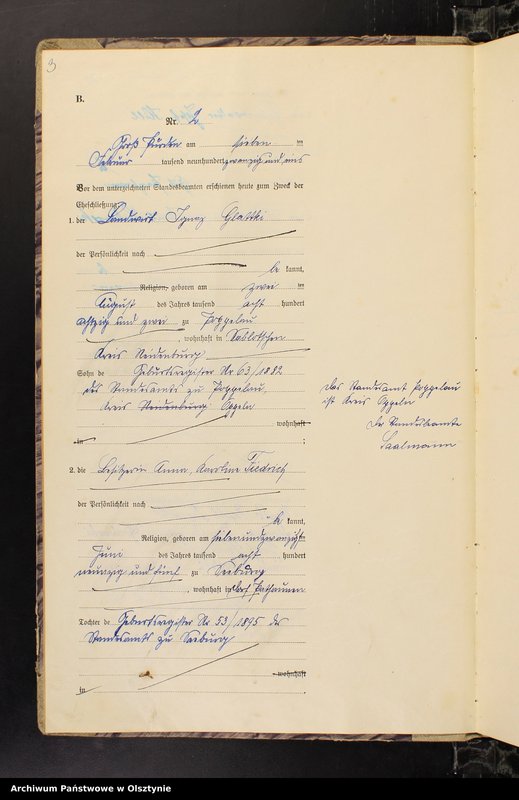 3
B.
Nr. 2
Groß Purden am sieben ten
Februar tausend neunhundert zwanzig und eins
Vor dem unterzeichneten Standesbeamten erschienen heute zum Zweck der
Eheschließung:
1. der Landwirt Ignaz
der Persönlichkeit nach
be kannt,
Religion, geboren am zwei ten
August des Jahres tausend acht hundert
achtzig und zwei zu Poppelau
, wohnhaft in
Kreis Neidenburg
Sohn de Geburtsregister Nr 63/1882
des Standesamts zu Poppelau
Kreis Neidenburg Oppeln
wohnhaft
in ;
das Standesamt Poppelau
ist Kreis Oppeln
Der Standesbeamte
Saalmann
2. die Besitzerin Anna, Karoline
der Persönlichkeit nach
be kannt,
Religion, geboren am siebenundzwanzigsten
Juni des Jahres tausend acht hundert
neunzig und fünf zu Seeburg
, wohnhaft in
Tochter de Geburtsregister Nr 53/1895 des
Standesamts zu Seeburg
wohnhaft
in .
Archiwum Państwowe w Olsztynie